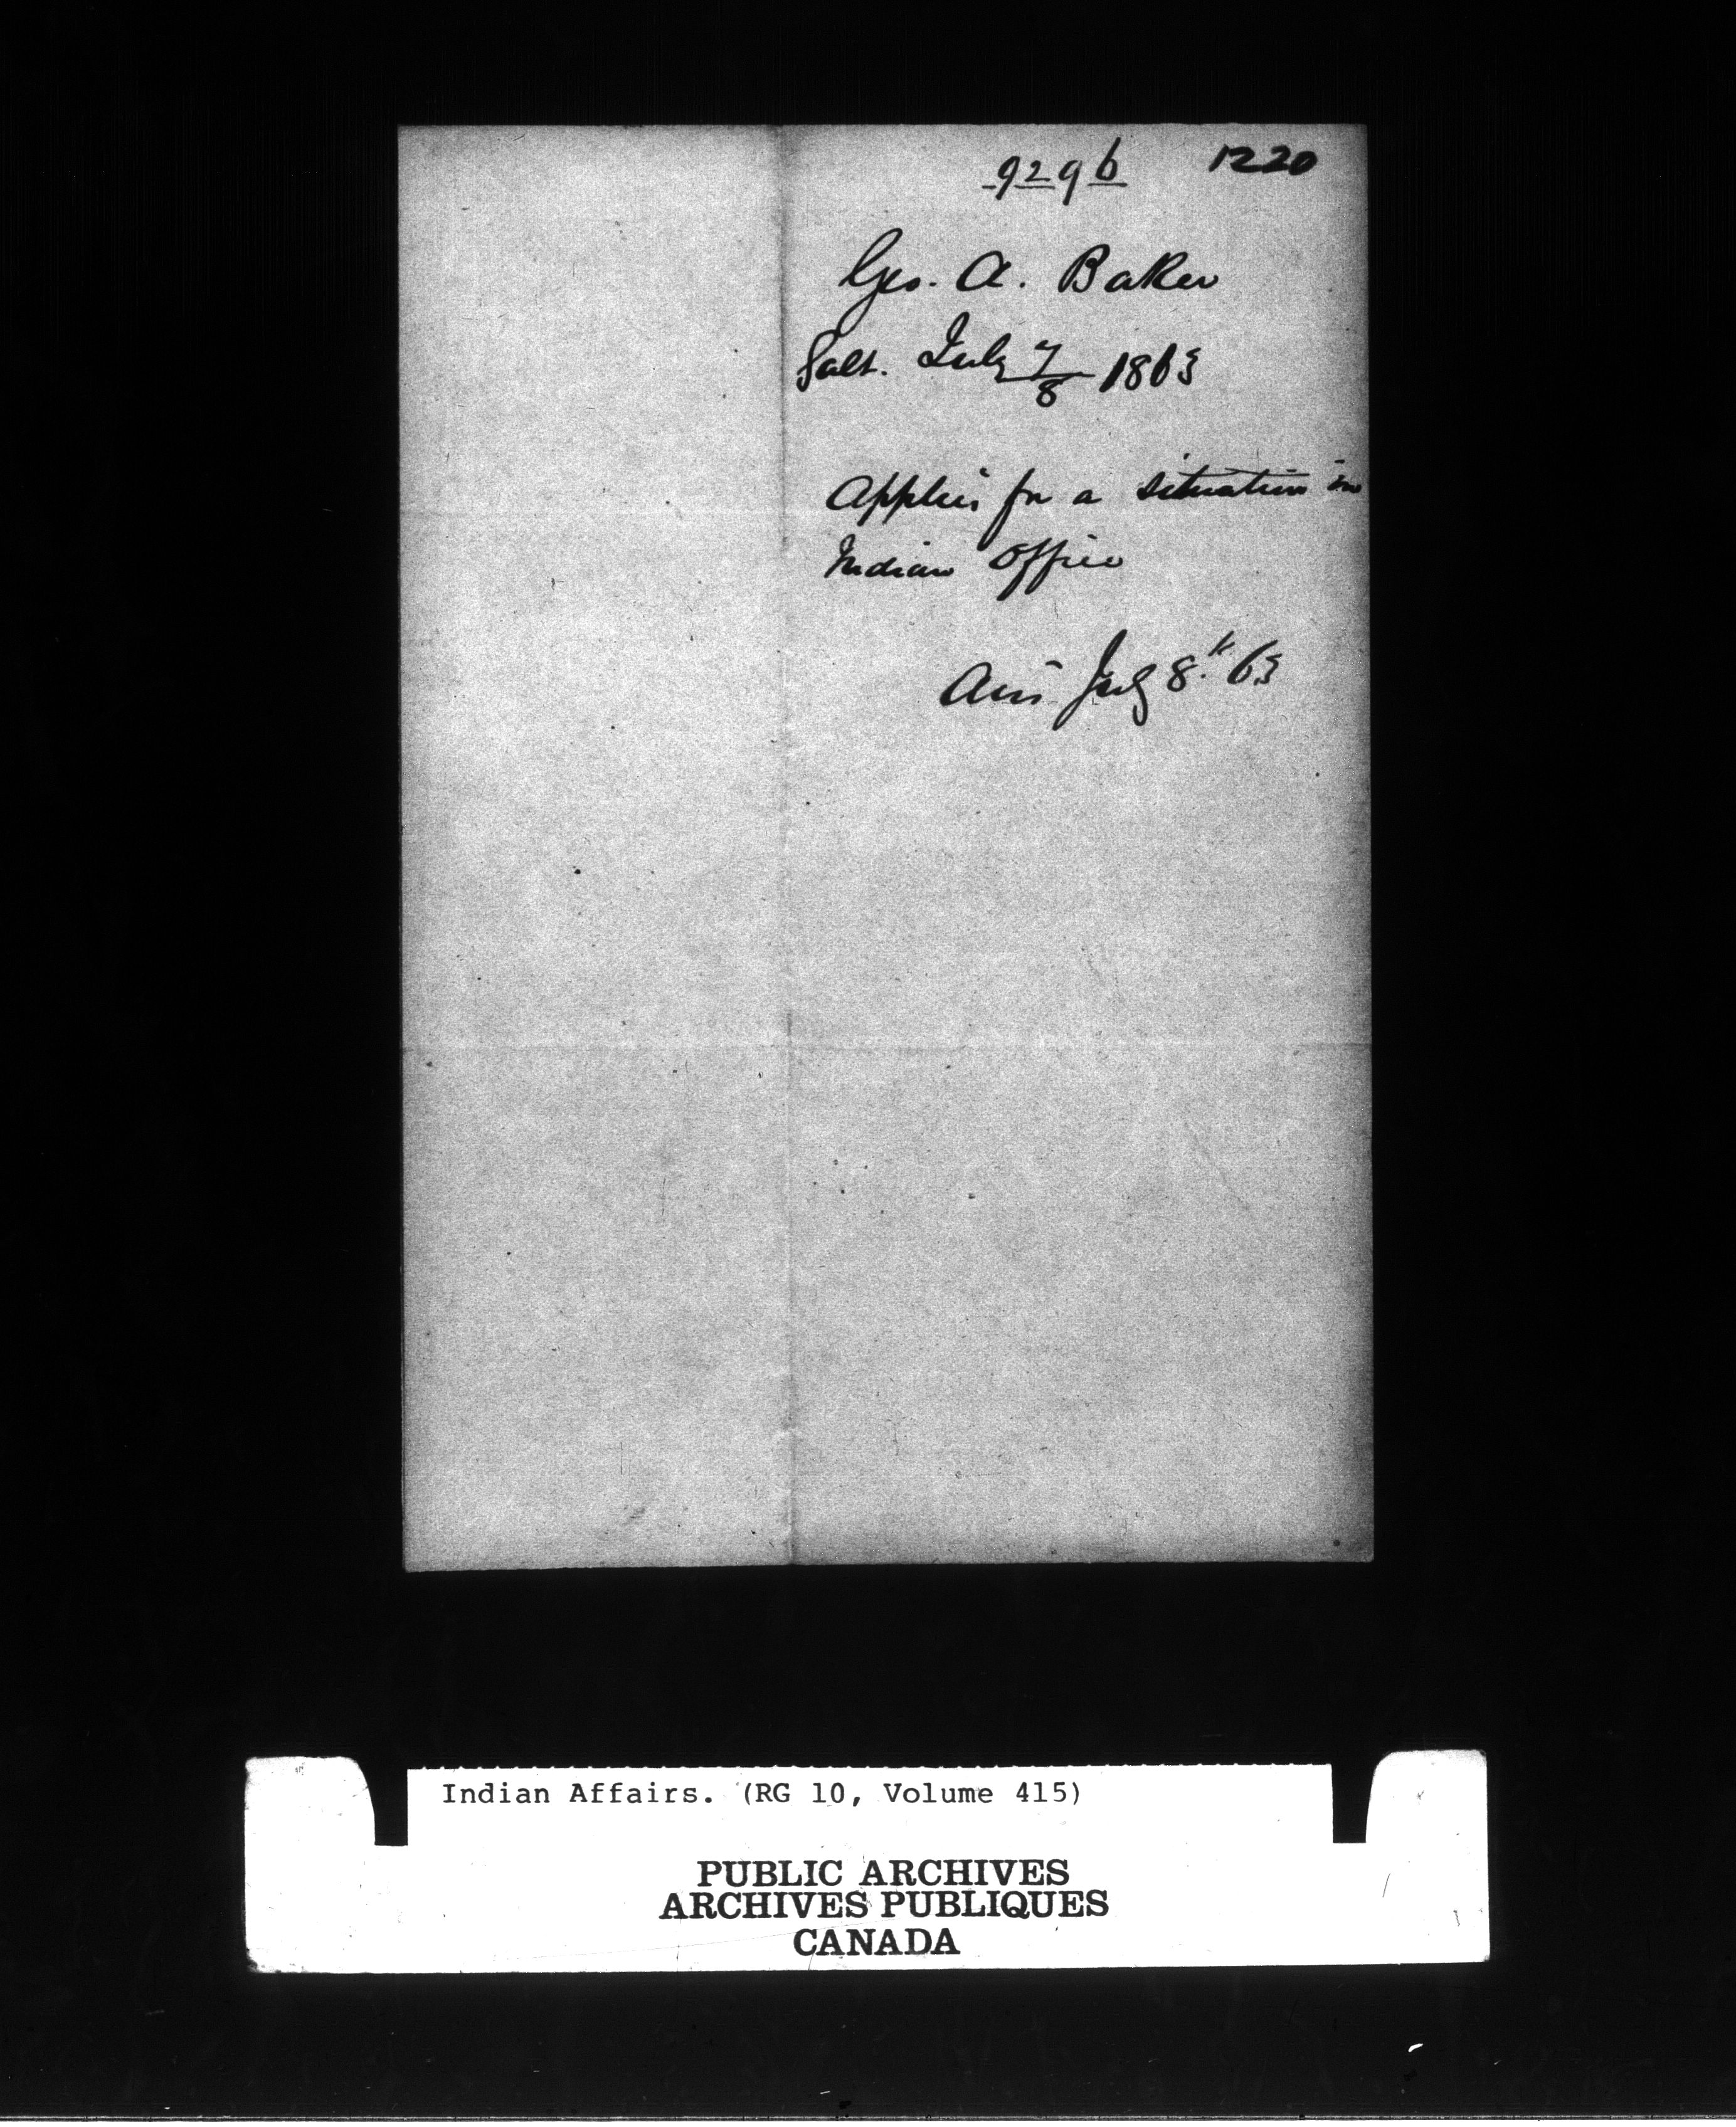 9296 1220
Geo. A. Baker
Galt. July 7/8 1863
Applies for a situation in
Indian Office
Ans July 8th 63
Indian Affairs. (RG 10, Volume 415)
PUBLIC ARCHIVES
ARCHIVES PUBLIQUES
CANADA